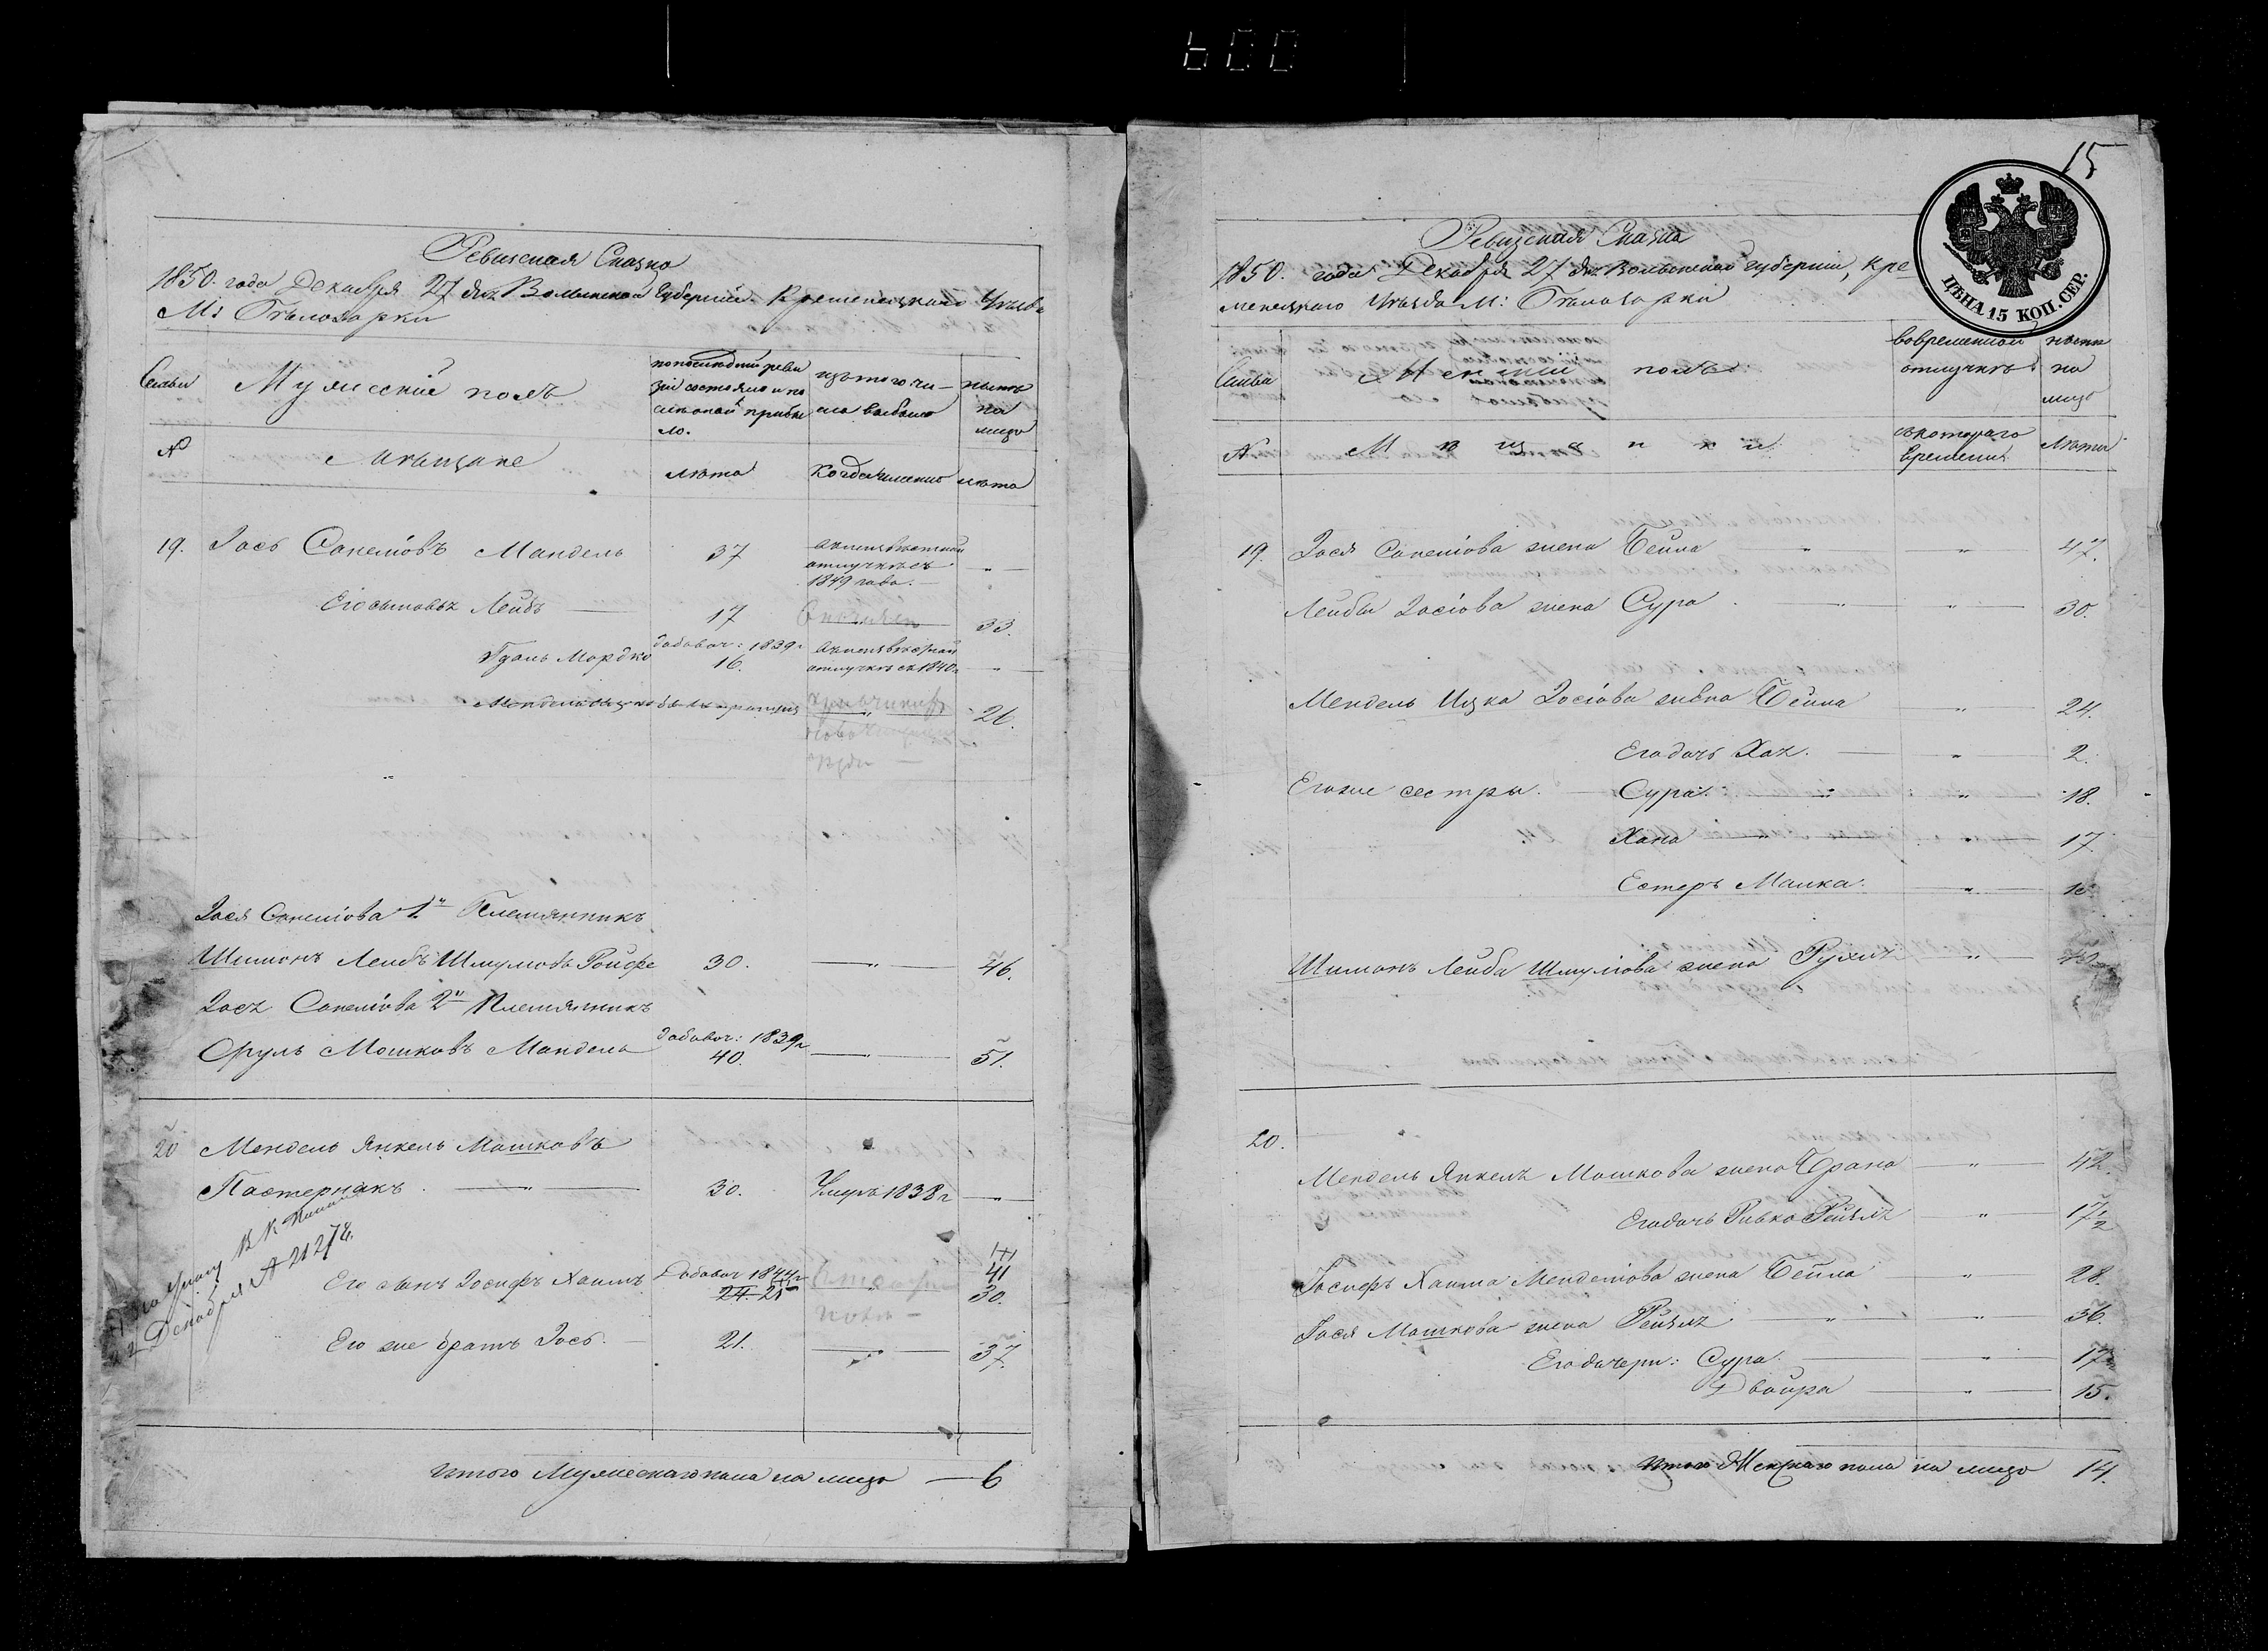 600
Ревизская Сказка
1850. года Декабря 27 дня Волынской Губернии Кременецкаго Уезда
М: Белозорки
Семьи
Мужеский полъ
по последней ревизии состояло и после оной прибыло.
изъ того числа выбыло
ныне на лицо
№
Мещане
лета
Когда именно
лета
19. Іось Сапеліовъ Мандель 37 въ неизвестной отлучке съ 1849 года. "
Его сыновья Лейбъ 17 " 33.
Гдаль Мордко добавоч: 1839 г 16. въ неизвестной отлучке съ 1840 г "
" 26.
Іося Сапеліова 1й Племянникъ
Шимонъ Лейбъ Шмулювъ Ройфе 30. " 46.
Іося Сапеліова 2й Племянникъ
Сруль Мошковъ Мандель добавоч: 1839 г 40. " 51.
20 Мендель Янкель Мошковъ
Пастернакъ " 30. Умеръ 1838 г "
Декабря № 21278.
Его сынъ Іосифъ Хаимъ Добавоч 1844 г 24. 25 41 30.
Его же братъ Іось. 21. " 37.
Итого Мужескаго пола на лицо 6
15
ЦѢНА 15 КОП. СЕР.
Ревизская Сказка
1850. года Декабря 27 дня Волынской губернии, Кре
менецкаго Уезда М: Белозорки
Семьи
Женский полъ
во временной отлучке
ныне на лицо
№
Мещанки
съ котораго времени
Лета
19. Іося Сапеліова жена Бейла " " 47.
Лейбы Іосіова жена Сура " " 30.
Мендель Ицка Іосіова жена Бейла " 24.
Его дочь Хая. " 2.
Его же сестры. Сура. " " 18.
Хана " " 17.
Естеръ Малка. "
Шимонъ Лейба Шмуліова жена Рухля "
20.
Мендель Янкеля Мошкова жена Брана " 42.
Его дочь Ривка Рейзля " 17½
Іосифъ Хаима Менделіова жена Бейла " 28.
Іося Мошкова жена Рейзля " " 36.
Его дочери: Сура. " 17
Двойра " 15.
Итого Женскаго пола на лицо 14.